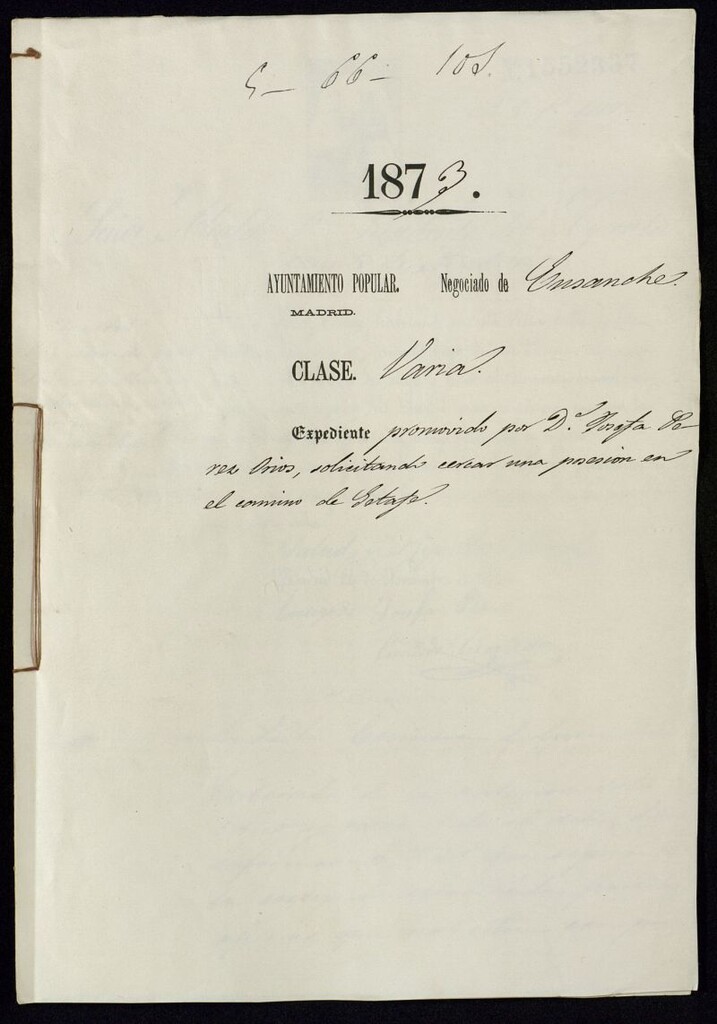 5 - 66 - 101.
1873.
AYUNTAMIENTO POPULAR. Negociado de Ensanche.
MADRID.
CLASE. Varia.
Expediente promovido por D.ª Josefa Pe-
rez Orios, solicitando cercar una posesion en
el camino de Getafe.